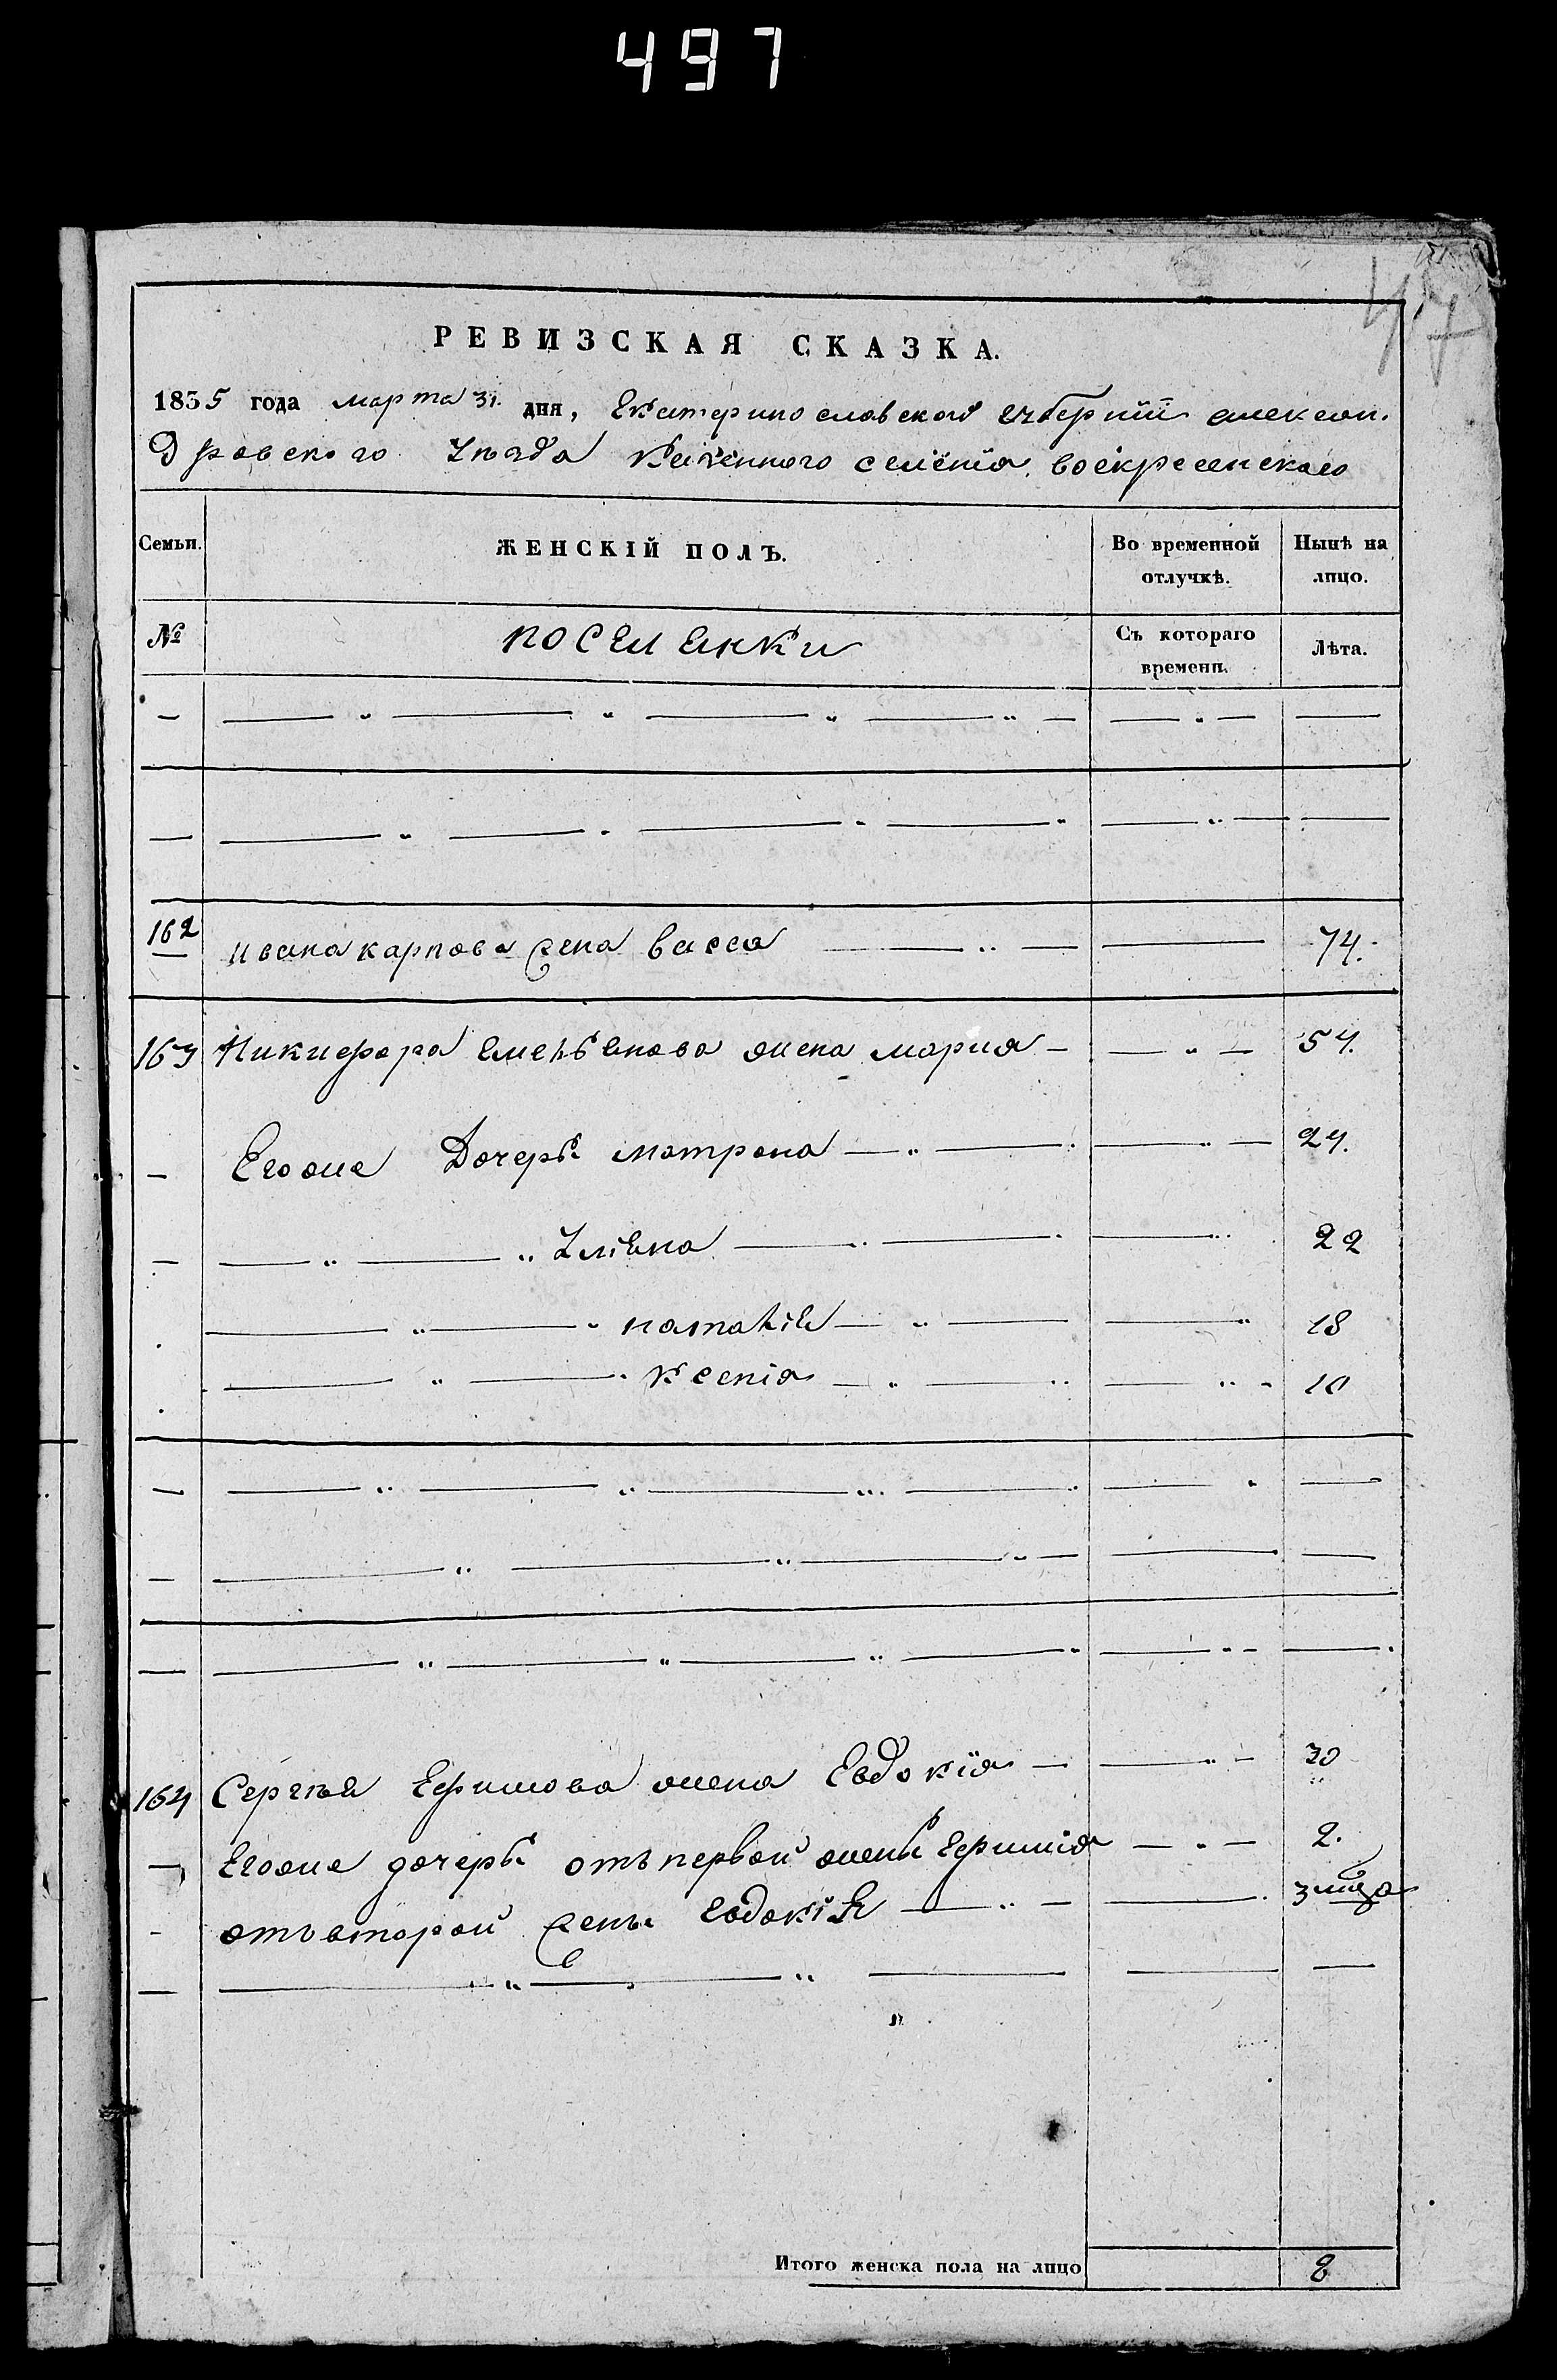 497
47
РЕВИЗСКАЯ СКАЗКА.
1835 года марта 31. дня, Екатеринославской губернии алексан.
Дровского Уезда Казенного селения воскресенского
Семьи. ЖЕНСКІЙ ПОЛЪ. Во временной отлучкѣ. Нынѣ на лицо.
№ поселенки Съ котораго времени. Лѣта.
162 ивана карпова жена васса 74.
163 Никифора емельенова жена мария 54.
Егоже Дочерьи матрона 24.
Улиена 22
наталия 18
Ксения 10
164 Сергѣя Ефимова жена Евдокїя 30
Егоже дочерьи отъ первой жены Ефимия 2.
отъ второй жены евдокия 3 мца
Итого женска пола на лицо 8